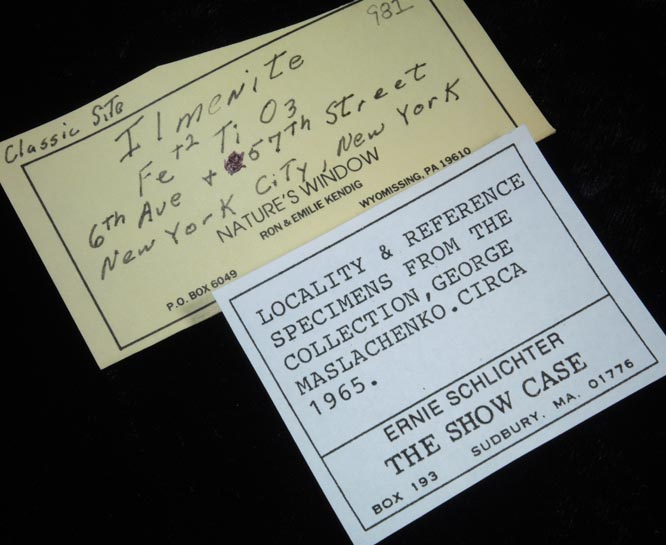 981
Classic Site
Ilmenite
Fe+2 Ti O3
6th Ave + 57th Street
New York City, New York
NATURE'S WINDOW
RON & EMILIE KENDIG
P.O. BOX 6049 WYOMISSING, PA 19610
LOCALITY & REFERENCE
SPECIMENS FROM THE
COLLECTION,GEORGE
MASLACHENKO.CIRCA
1965.
ERNIE SCHLICHTER
THE SHOW CASE
BOX 193 SUDBURY, MA. 01776